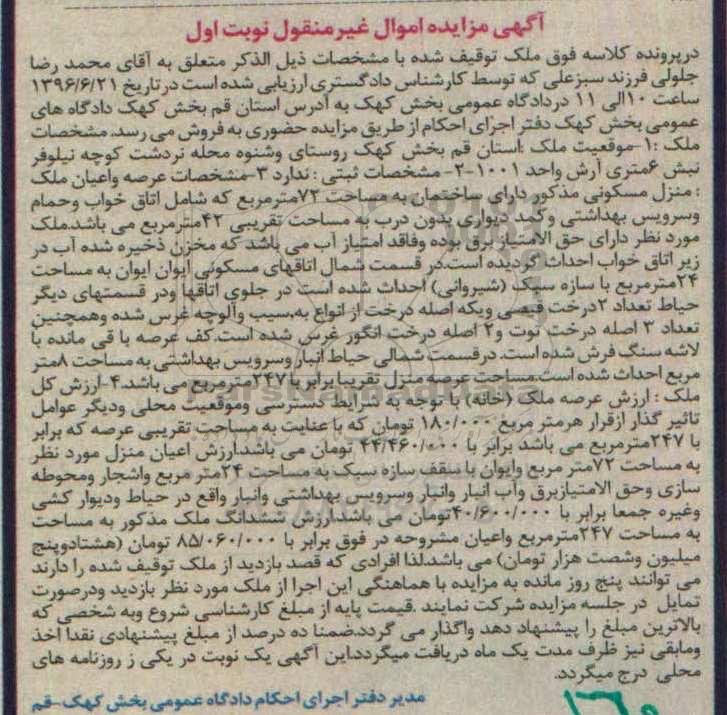 آگهی مزایده اموال غیرمنقول نوبت اول
درپرونده کلاسه فوق ملک توقیف شده با مشخصات ذیل الذکر متعلق به آقای محمد رضا
جلولی فرزند سبزعلی که توسط کارشناس دادگستری ارزیابی شده است درتاریخ ۱۳۹۶/۶/۲۱
ساعت ۱۰الی ۱۱ دردادگاه عمومی بخش کهک به آدرس استان قم بخش کهک دادگاه های
عمومی بخش کهک دفتر اجرای احکام از طریق مزایده حضوری به فروش می رسد. مشخصات
ملک :۱-موقعیت ملک :استان قم بخش کهک روستای وشنوه محله نردشت کوچه نیلوفر
نبش ۶متری آرش واحد ۱۰۰۱-۲- مشخصات ثبتی : ندارد ۳-مشخصات عرصه واعیان ملک
: منزل مسکونی مذکور دارای ساختمان به مساحت ۷۲مترمربع که شامل اتاق خواب وحمام
وسرویس بهداشتی وکمد دیواری بدون درب به مساحت تقریبی ۴۲مترمربع می باشد.ملک
مورد نظر دارای حق الامتیاز برق بوده وفاقد امتیاز آب می باشد که مخزن ذخیره شده آب در
زیر اتاق خواب احداث گردیده است.در قسمت شمال اتاقهای مسکونی ایوان ایوان به مساحت
۲۴مترمربع با سازه سبک (شیروانی) احداث شده است در جلوی اتاقها ودر قسمتهای دیگر
حیاط تعداد ۲درخت قیصی ویکه اصله درخت از انواع به،سیب وآلوچه غرس شده وهمچنین
تعداد ۳ اصله درخت توت و۲ اصله درخت انگور غرس شده است.کف عرصه با قی مانده با
لاشه سنگ فرش شده است. درقسمت شمالی حیاط انبار وسرویس بهداشتی به مساحت ۸متر
مربع احداث شده است.مساحت عرصه منزل تقریبا برابر با ۲۴۷مترمربع می باشد.۴-ارزش کل
ملک : ارزش عرصه ملک (خانه) با توجه به شرایط دسترسی وموقعیت محلی ودیگر عوامل
تاثیر گذار ازقرار هرمتر مربع ۱۸۰/۰۰۰ تومان که با عنایت به مساحت تقریبی عرصه که برابر
با ۲۴۷مترمربع می باشد برابر با ۴۴/۴۶۰/۰۰۰ تومان می باشد.ارزش اعیان منزل مورد نظر
به مساحت ۷۲متر مربع وایوان با سقف سازه سبک به مساحت ۲۴متر مربع واشجار ومحوطه
سازی وحق الامتیازبرق وآب انبار وانبار وسرویس بهداشتی وانبار واقع در حیاط ودیوار کشی
وغیره جمعا برابر با ۴۰/۶۰۰/۰۰۰تومان می باشد.ارزش ششدانگ ملک مذکور به مساحت
به مساحت ۲۴۷مترمربع واعیان مشروحه در فوق برابر با ۸۵/۰۶۰/۰۰۰ تومان (هشتادوپنج
میلیون وشصت هزار تومان) می باشد.لذا افرادی که قصد بازدید از ملک توقیف شده را دارند
می توانند پنج روز مانده به مزایده با هماهنگی این اجرا از ملک مورد نظر بازدید ودرصورت
تمایل در جلسه مزایده شرکت نمایند .قیمت پایه از مبلغ کارشناسی شروع وبه شخصی که
بالاترین مبلغ را پیشنهاد دهد واگذار می گردد.ضمنا ده درصد از مبلغ پیشنهادی نقدا اخذ
ومابقی نیز ظرف مدت یک ماه دریافت میگردد.این آگهی یک نوبت در یکی ز روزنامه های
محلی درج میگردد.
مدیر دفتر اجرای احکام دادگاه عمومی بخش کهک-قم